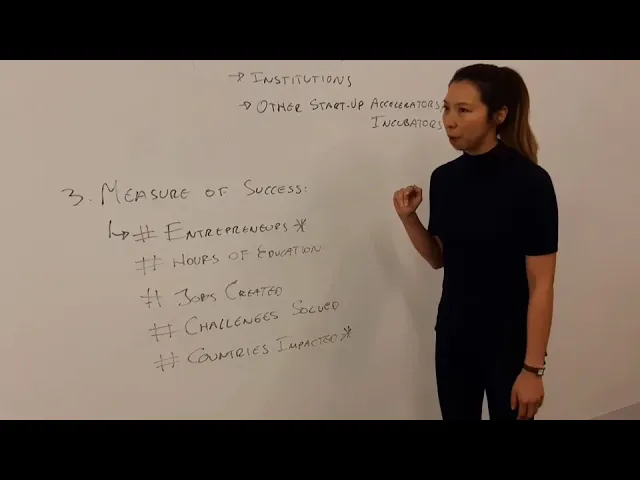 → INSTITUTIONS
→ OTHER START-UP ACCELERATORS,
INCUBATORS
3. MEASURE OF SUCCESS:
↳ # ENTREPRENEURS *
# HOURS OF EDUCATION
# JOBS CREATED
# CHALLENGES SOLVED
# COUNTRIES IMPACTED *